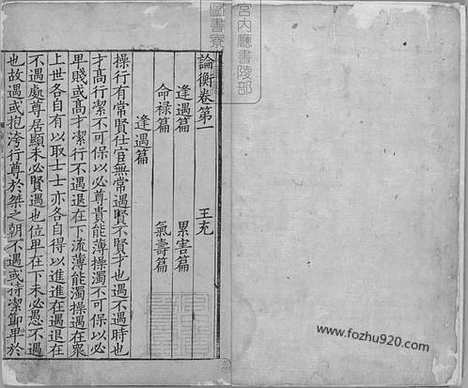 論衡卷第一
王充
逢遇篇
累害篇
命禄篇
氣壽篇
逢遇篇
操行有常賢仕宦無常遇賢不賢才也遇不遇時也
才髙行潔不可以必尊貴能薄操濁不可以必
卑賤或髙才潔行不遇退在下流薄能濁操遇在衆
上世各自有以取士士亦各自得以進進在遇退在
不遇處尊居顯未必賢遇也位卑在下未必愚不遇
也故遇或抱洿行尊於桀之朝不遇或持潔節卑於
宮内廳書陵部
圖書寮
www.fozhu920.com